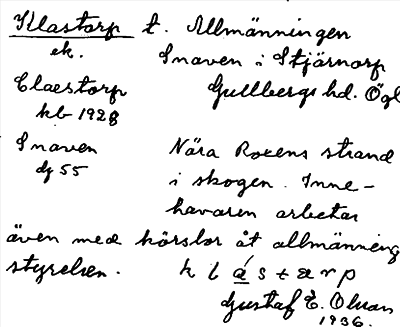 Klastorp t. Allmänningen
ek. Snaven i Stjärnorp
Claestorp Gullbergs hd. Ögl
kb 1928
Snaven Nära Roxens strand
dg 55 i skogen. Inne-
havaren arbetar
även med körslor åt allmänning
styrelsen. k l á s t a r p
Gustaf E. Olsson
1936.